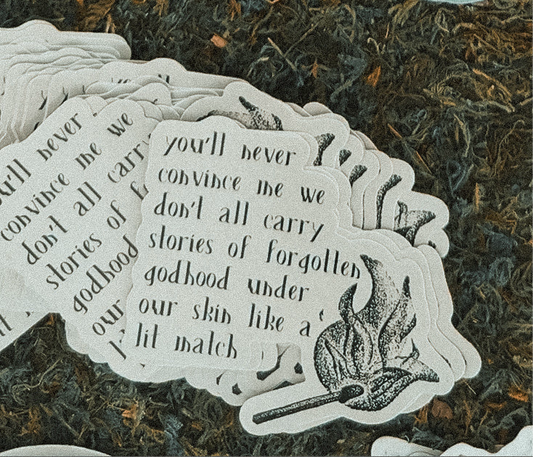 you'll never
convince me we
don't all carry
stories of forgotten
godhood under
our skin like a
lit match
you'll never
convince me we
don't all carry
stories of f
godhood
our